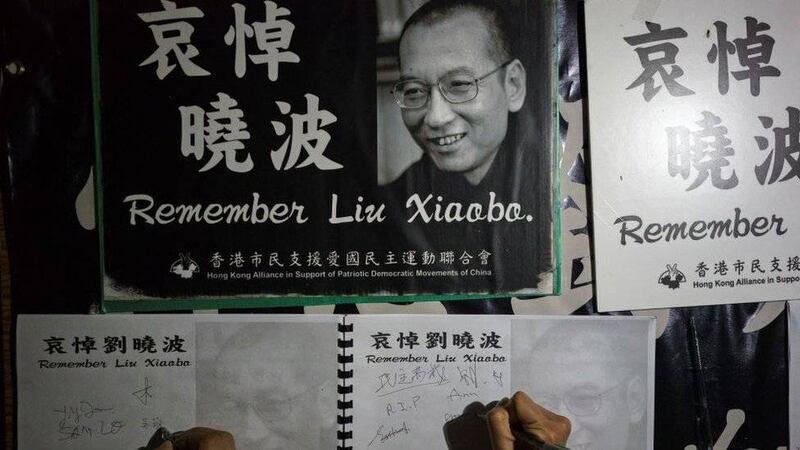 哀悼
曉波
Remember Liu Xiaobo.
香港市民支援愛國民主運動聯合會
Hong Kong Alliance in Support of Patriotic Democratic Movements of China
哀悼
曉波
Remember
香港市民支
Hong Kong Alliance in Suppo
哀悼劉曉波
Remember Liu Xiaobo
SAM
哀悼劉曉波
Remember Liu Xiaobo
R.I.P
Ann